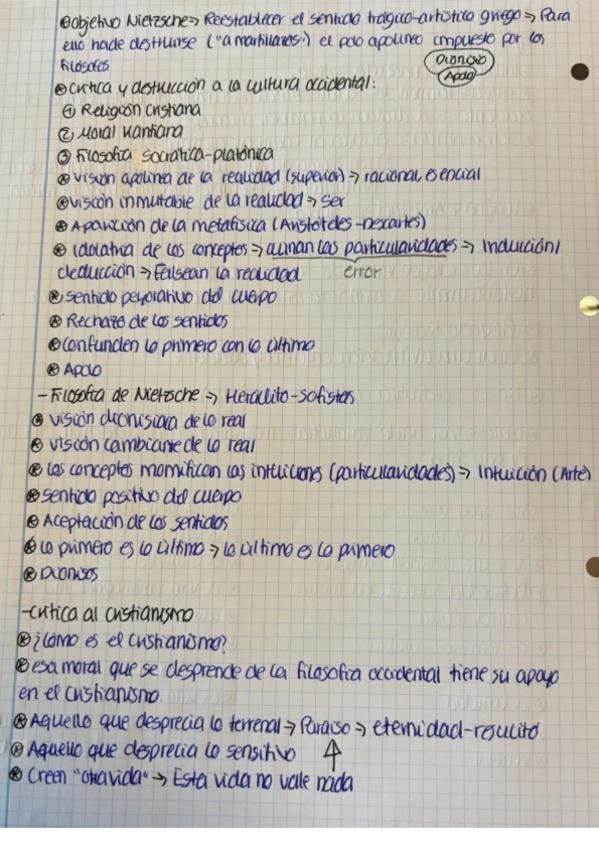 ⊛ objetivo Nietzsche → Reestablecer el sentido trágico-artístico griego → Para
ello hade destruirse ("a martillazos") el polo apolineo impuesto por los
filósofos
Dioniso
Apolo
⊛ Crítica y destrucción a la cultura occidental:
① Religión cristiana
② Moral Kantiana
③ Filosofía socrática-platónica
⊛ Visión apolinea de la realidad (superior) → racional, esencial
⊛ Visión inmutable de la realidad → ser
⊛ Aparición de la metafísica (Aristóteles-Descartes)
⊛ Idolatría de los conceptos → eliminan las particularidades → Inducción/
deducción → Falsean la realidad error
⊛ Sentido peyorativo del cuerpo
⊛ Rechazo de los sentidos
⊛ Confunden lo primero con lo último
⊛ Apolo
- Filosofía de Nietzsche → Heráclito-Sofistas
⊛ Visión dionisiaca de lo real
⊛ Visión cambiante de lo real
⊛ Los conceptos momifican las intuiciones (particularidades) → Intuición (Arte)
⊛ Sentido positivo del cuerpo
⊛ Aceptación de los sentidos
⊛ Lo primero es lo último → lo último es lo primero
⊛ Dionisos
- Crítica al cristianismo
⊛ ¿Cómo es el cristianismo?
⊛ esa moral que se desprende de la filosofía occidental tiene su apoyo
en el cristianismo
⊛ Aquello que desprecia lo terrenal → Paraíso → eternidad-resucitó
⊛ Aquello que desprecia lo sensitivo ↑
⊛ Creen "otra vida" → Esta vida no vale nada